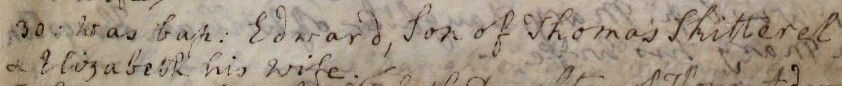 30: was bap: Edward, Son of Thomas Skitterel
& Elizabeth his wife.